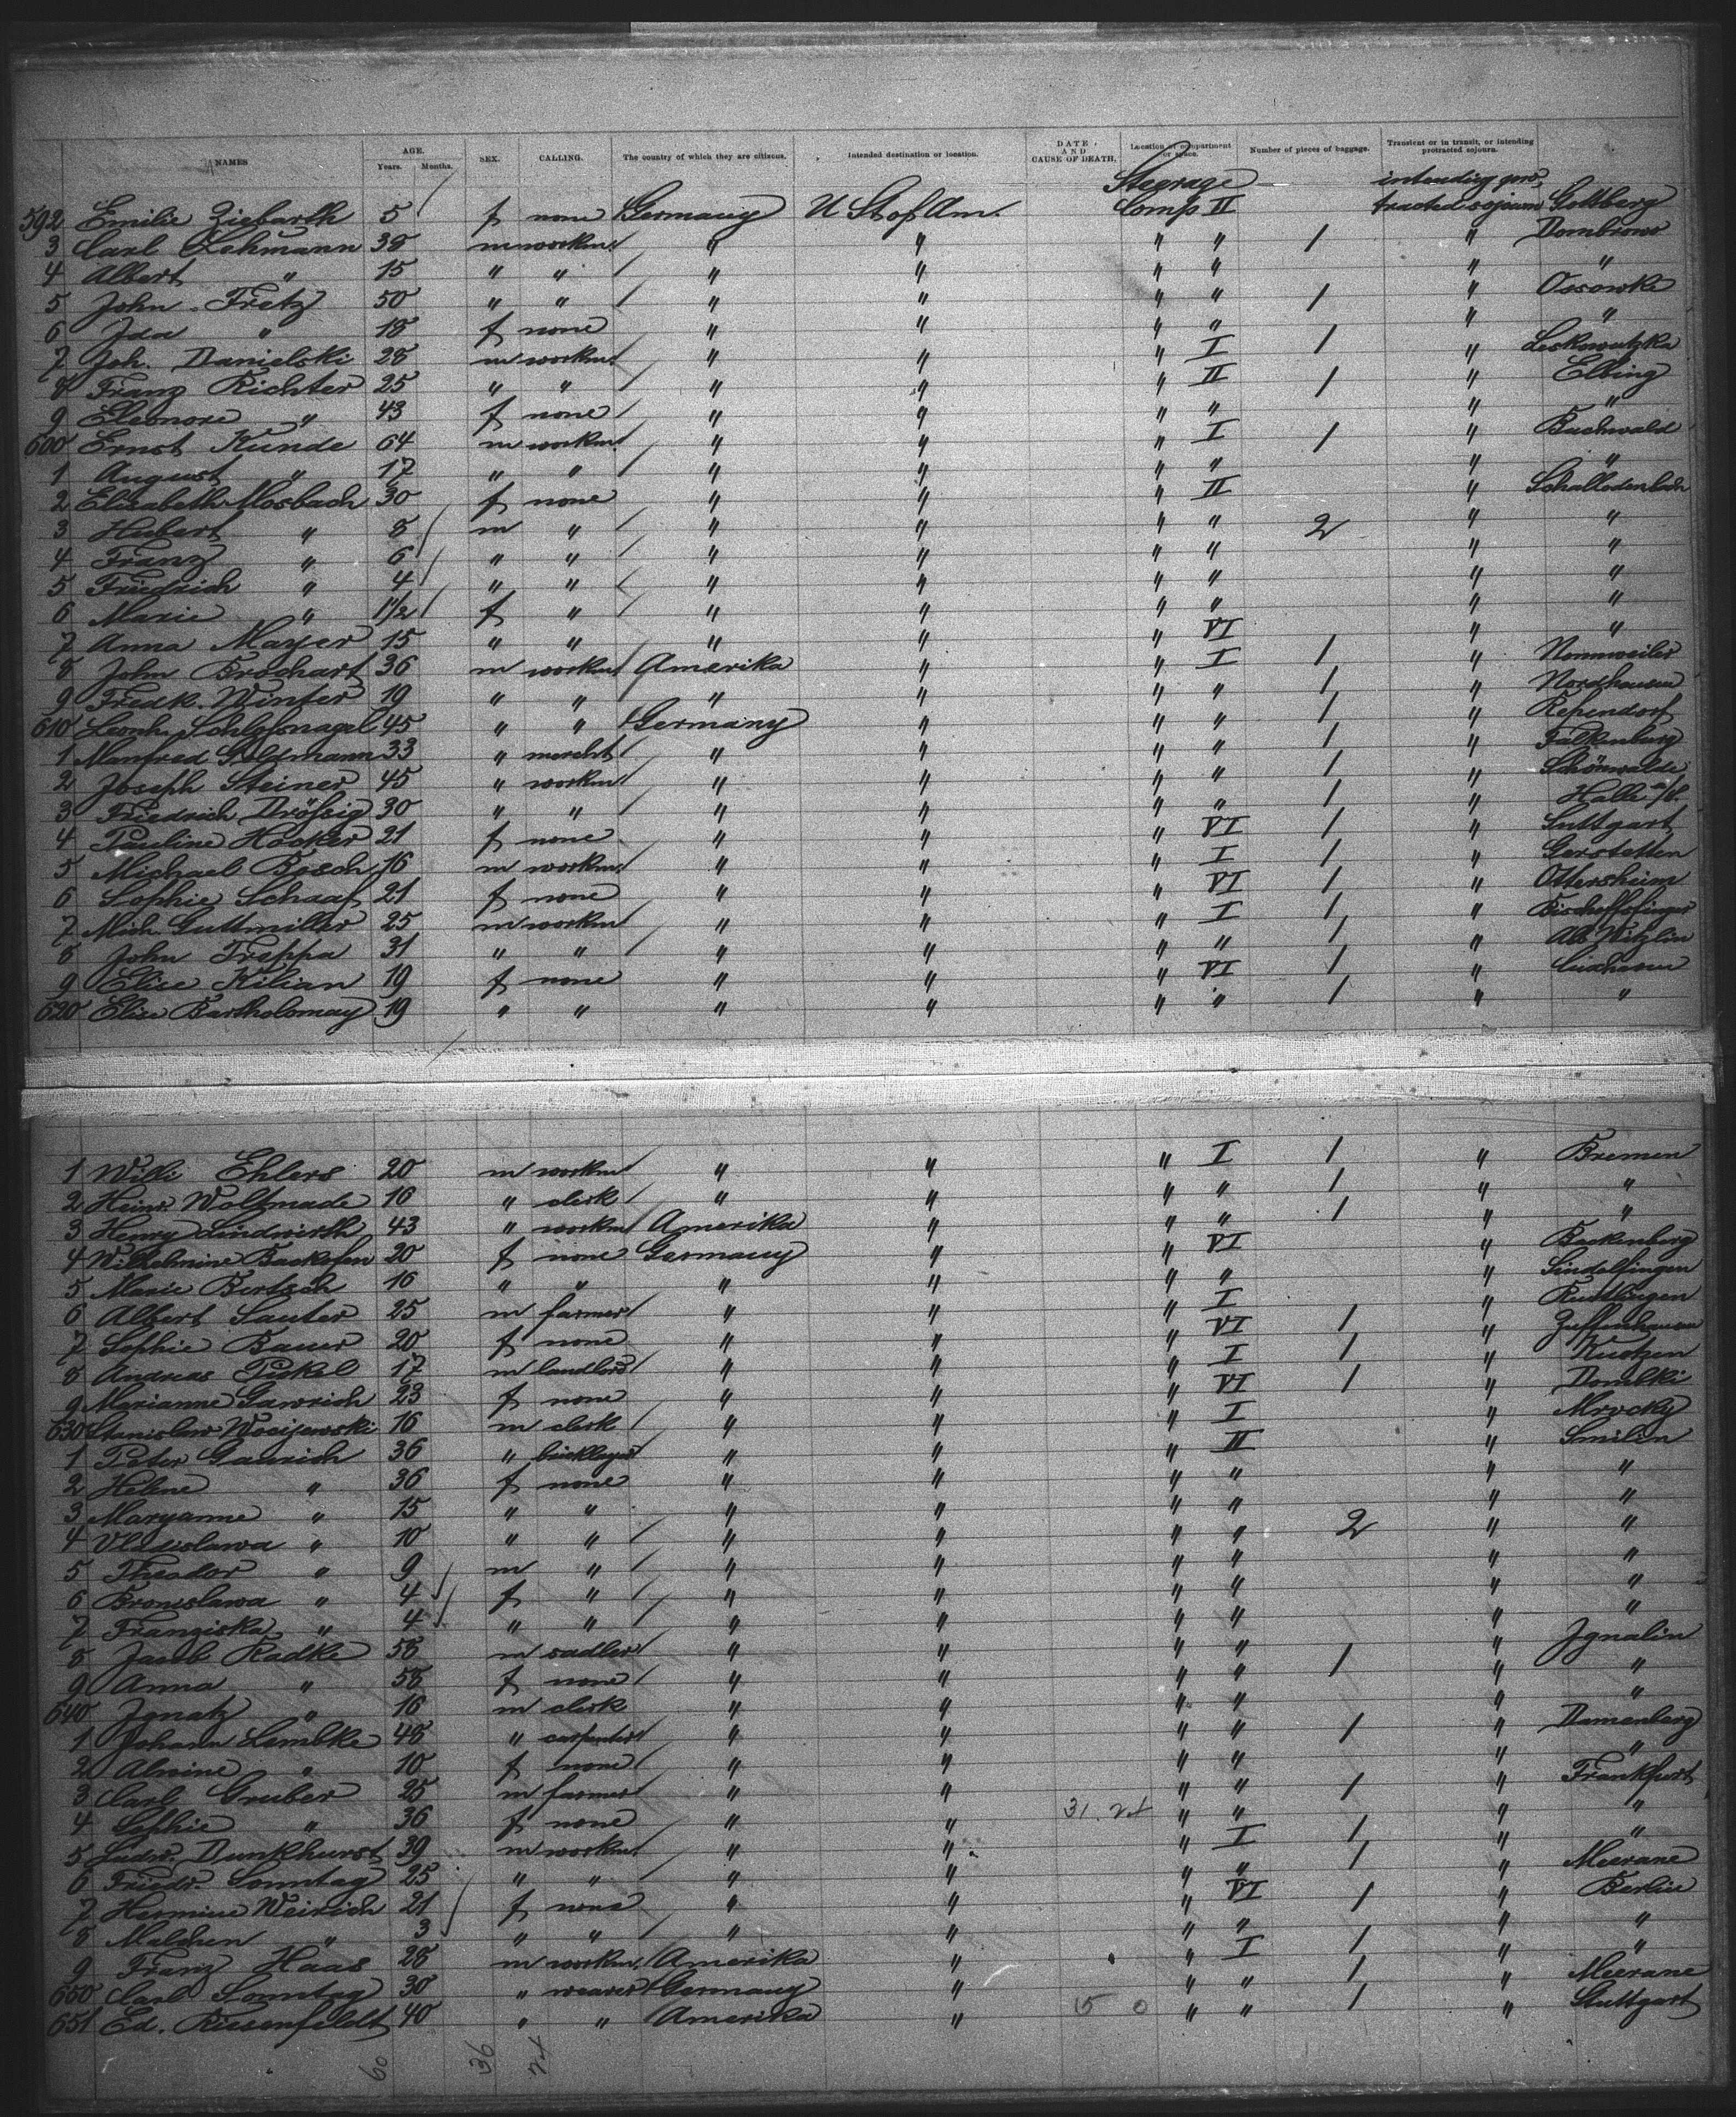 NAMES AGE. Years. Months. SEX. CALLING. The country of which they are citizens. Intended destination or location. DATE AND CAUSE OF DEATH. Location of compartment or space. Number of pieces of baggage. Transient or in transit, or intending protracted sojourn.
Steerage intending pro-
592 Emilie Ziebarth 5 f none Germany U St of Am. Comp II tracted sojourn Gollberg
3 Carl Lehmann 38 m workm. " " " " 1 " Dombrowo
4 Albert " 15 " " " " " " " "
5 John Fretz 50 " " " " " " 1 " Ossowke
6 Ida " 18 f none " " " " " "
7 Joh. Danielski 28 m workm. " " " I 1 " Leskowutzka
8 Franz Richter 25 " " " " " II 1 " Elbing
9 Eleonore " 43 f none " " " " " "
600 Ernst Kunde 64 m workm. " " " I 1 " Buchwald
1 August " 17 " " " " " " " "
2 Elisabeth Mosbach 30 f none " " " II " Schallodenbach
3 Hubert " 8 m " " " " " 2 " "
4 Franz " 6 " " " " " " " "
5 Friedrich " 4 " " " " " " " "
6 Marie " 1 1/2 f " " " " " " "
7 Anna Mayer 15 " " " " " VI 1 " "
8 John Brochart 36 m workm Amerika " " I 1 " Nonnweiler
9 Fredk. Winter 19 " " " " " " 1 " Nordhausen
610 Leonh. Schlossnagel 45 " " Germany " " " 1 " Rependorf
1 Manfred Goldmann 33 " mercht " " " " 1 " Falkenberg
2 Joseph Steiner 45 " workm " " " " 1 " Schönwalde
3 Friedrich Drössig 30 " " " " " " 1 " Halle a/S.
4 Pauline Hocker 21 f none " " " VI 1 " Suttgart
5 Michael Bosch 16 m workm " " " I 1 " Gerstetten
6 Sophie Schaaf 21 f none " " " VI 1 " Ottersheim
7 Mich. Guttmiller 25 m workm " " " I 1 " Bischoffsinger
8 John Treppa 31 " " " " " " 1 " Alt Vitzlin
9 Elise Kilian 19 f none " " " VI 1 " Cuxhaven
620 Elise Bartholomay 19 " " " " " " 1 " "
1 Willi Ehlers 20 m workm " " " I 1 " Bremen
2 Heinr. Woltmade 16 " clerk " " " " 1 " "
3 Henry Lindwirth 43 " workm Amerika " " " 1 " "
4 Wilhelmine Backofen 20 f none Germany " " VI " Backenberg
5 Marie Bertsch 16 " " " " " " " Sindelfingen
6 Albert Sauter 25 m farmer " " " I " Reutlingen
7 Sophie Bauer 20 f none " " " VI 1 " Zuffenhausen
8 Andreas Pickel 17 m landlord " " " I 1 " Kutzen
9 Marianne Gawrich 23 f none " " " VI 1 " Dombki
630 Stanislaw Wocijewski 16 m clerk " " " I " Mrocky
1 Peter Gawrich 36 " bricklayer " " " II " Smilin
2 Helene " 36 f none " " " " " "
3 Maryanne " 15 " " " " " " " "
4 Vladislawa " 10 " " " " " " 2 " "
5 Theodor " 9 m " " " " " " "
6 Bronislawa " 4 f " " " " " " "
7 Franziska " 4 " " " " " " " "
8 Jacob Radke 58 m sadler " " " " 1 " Ignalin
9 Anna " 58 f none " " " " " "
640 Ignatz " 16 m clerk " " " " " "
1 Johann Lembke 48 " carpenter " " " " 1 " Damenberg
2 Alwine " 10 f none " " " " " "
3 Carl Gruber 25 m farmer " " " " 1 " Frankfurt
4 Sophie " 36 f none " " 31. 24 " " " "
5 Ludw. Dunkhurst 39 m workm " " " I 1 " "
6 Friedr. Sonntag 25 " " " " " " 1 " Meerane
7 Hermine Weirich 21 f none " " " VI 1 " Berlin
8 Malchen " 3 " " " " " " " "
9 Franz Haas 28 m workm. Amerika " " I 1 " "
650 Carl Sonntag 30 " weaver Germany " " " 1 " Meerane
651 Ed. Riesenfeldt 40 " " Amerika " 15 0 " " 1 " Stuttgart
60 36 24